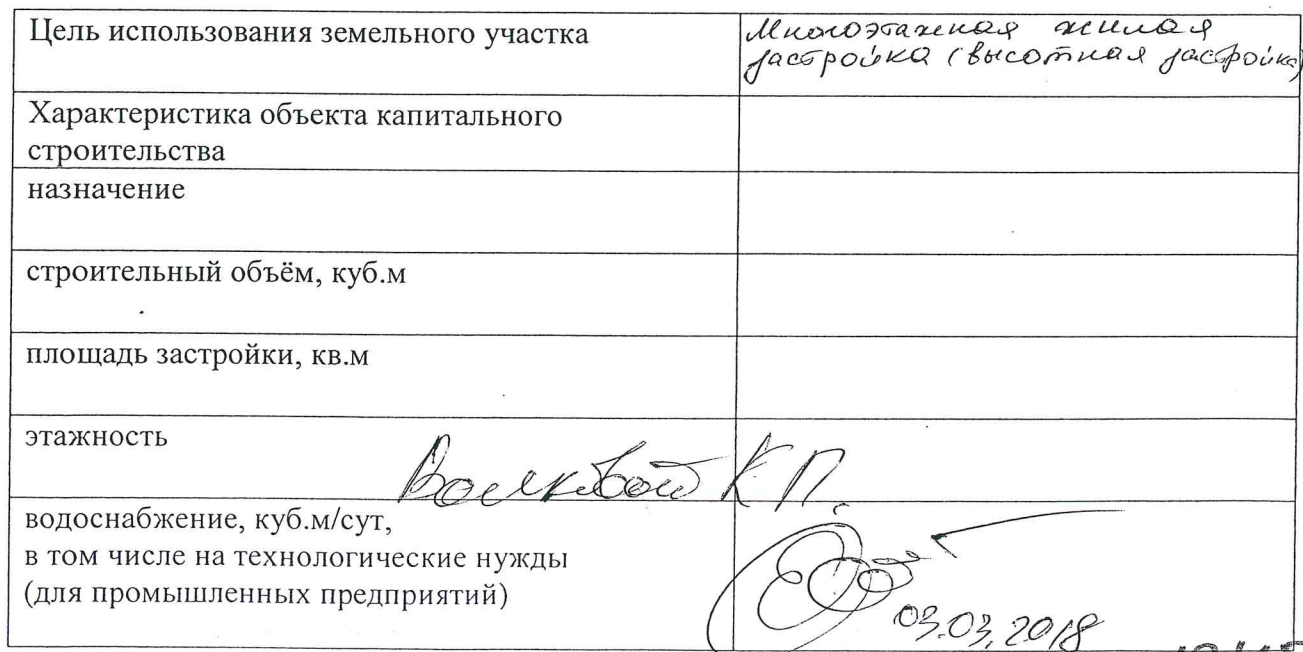 Цель использования земельного участка
Многоэтажная жилая
застройка (высотная застройка)
Характеристика объекта капитального
строительства
назначение
строительный объём, куб.м
площадь застройки, кв.м
этажность
К.П.
водоснабжение, куб.м/сут,
в том числе на технологические нужды
(для промышленных предприятий)
03.03.2018